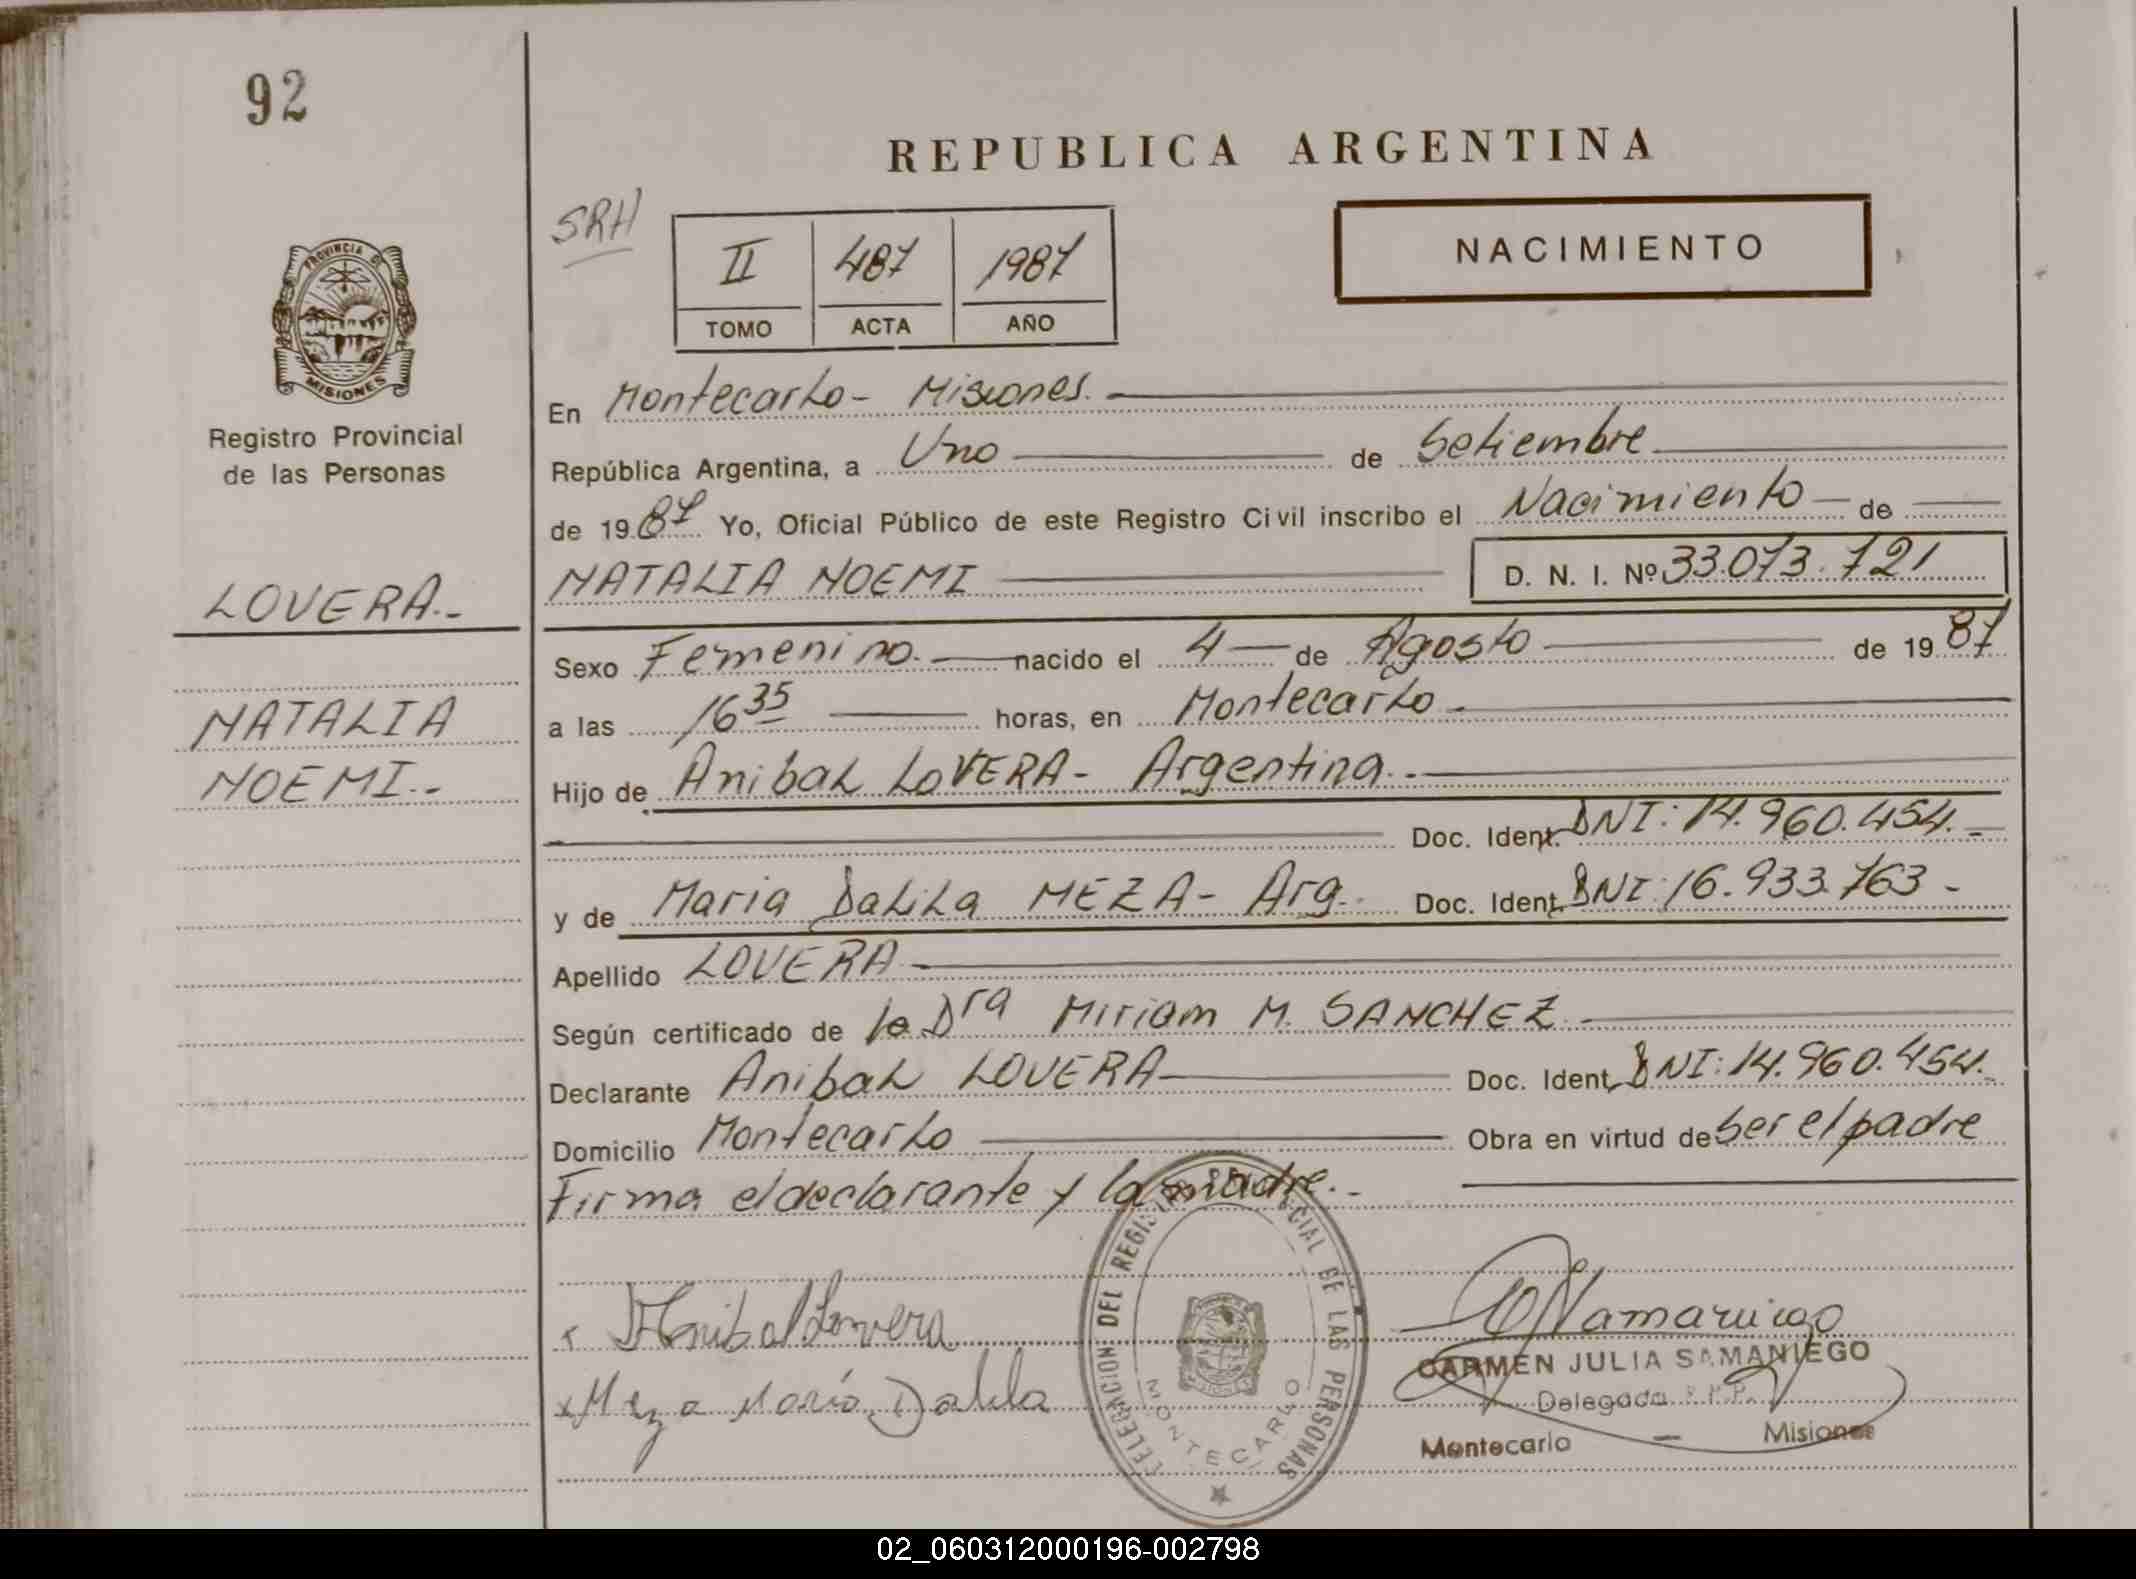 92
REPUBLICA ARGENTINA
SRH
II 487 1987
TOMO ACTA AÑO
NACIMIENTO
PROVINCIA DE
MISIONES
Registro Provincial
de las Personas
LOVERA.-
NATALIA
NOEMI.-
En Montecarlo- Misiones.
República Argentina, a Uno de Setiembre
de 1987 Yo, Oficial Público de este Registro Civil inscribo el Nacimiento de
NATALIA NOEMI D. N. I. Nº 33.073.721
Sexo Femenino. nacido el 4 de Agosto de 1987
a las 16 35 horas, en Montecarlo
Hijo de Anibal LOVERA- Argentina.-
Doc. Ident. DNI: 14.960.454.-
y de Maria Dalila MEZA- Arg. Doc. Ident. DNI: 16.933.763-
Apellido LOVERA
Según certificado de la Dra Miriam M. SANCHEZ.
Declarante Anibal LOVERA Doc. Ident. DNI: 14.960.454.-
Domicilio Montecarlo Obra en virtud de Ser el padre
Firma el declarante y la madre.-
x Anibal Lovera
x Meza María Dalila
DELEGACION DEL REGISTRO PROVINCIAL DE LAS PERSONAS
MONTECARLO
CARMEN JULIA SAMANIEGO
Delegada R.P.P.
Montecarlo - Misiones
02_060312000196-002798